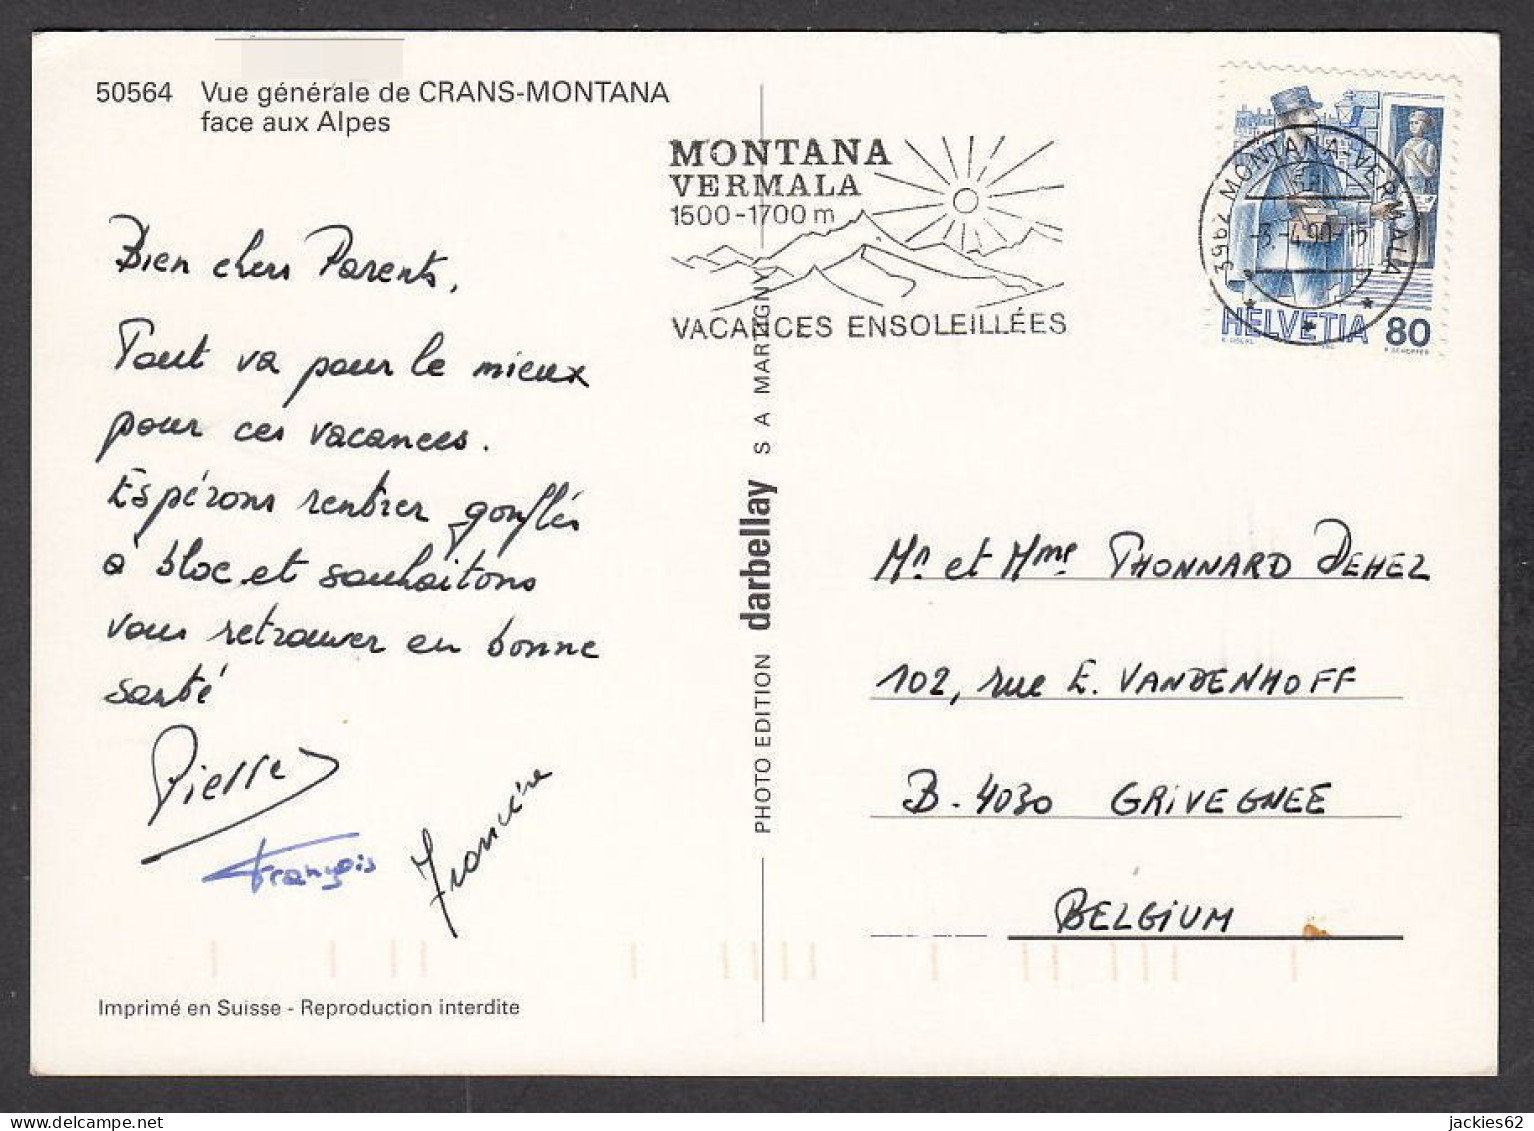 50564 Vue générale de CRANS-MONTANA
face aux Alpes
MONTANA
VERMALA
1500-1700 m
VACANCES ENSOLEILLÉES
3962 MONTANA-VERMALA
-3.-4.90-15
HELVETIA 80
Bien chers Parents,
Tout va pour le mieux
pour ces vacances.
Espérons rentrer gonflés
à bloc et souhaitons
vous retrouver en bonne
santé
Pierre
François
Francine
PHOTO EDITION darbellay S A MARTIGNY
Mr et Mme THONNARD DEHEZ
102, rue E. VANDENHOFF
B-4030 GRIVEGNEE
BELGIUM
Imprimé en Suisse - Reproduction interdite
jackies62